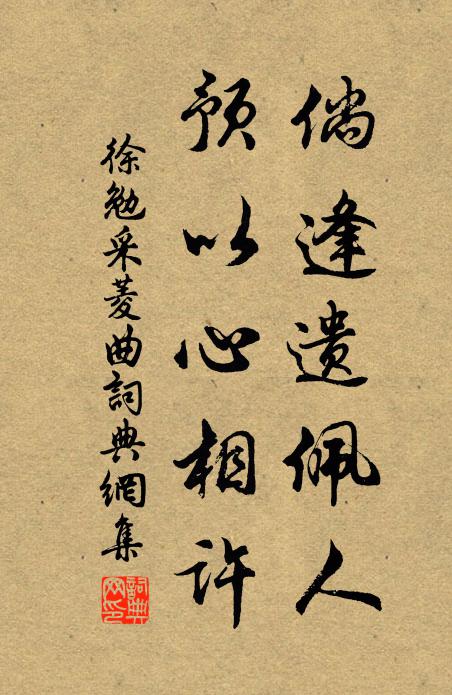 倘逢遺佩人
預以心相許
徐勉采菱曲詞典網集
詞典网印